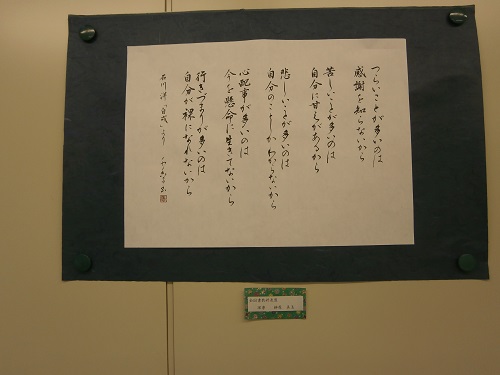 つらいことが多いのは
感謝を知らないから
苦しいことが多いのは
自分に甘えがあるから
悲しいことが多いのは
自分のことしかわからないから
心配事が多いのは
今を懸命に生きてないから
行きづまりが多いのは
自分が裸になれないから
石川洋「自戒」より